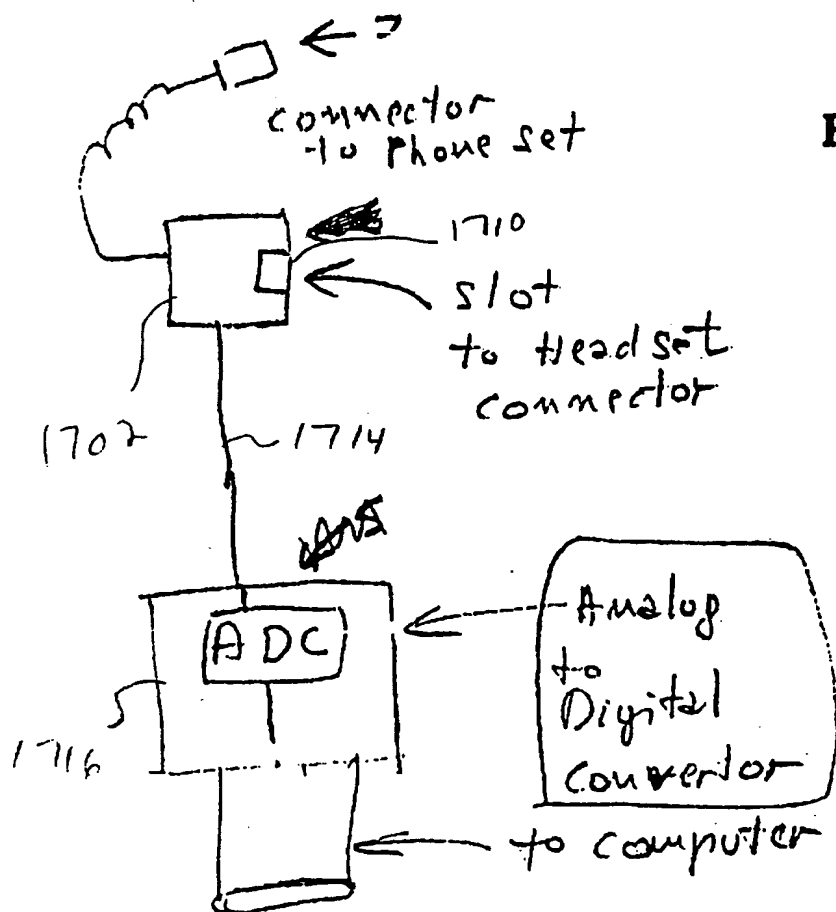 connector
to phone set
1710
slot
to Head set
connector
1702
1714
ADC
Analog
to
Digital
convertor
1716
to computer